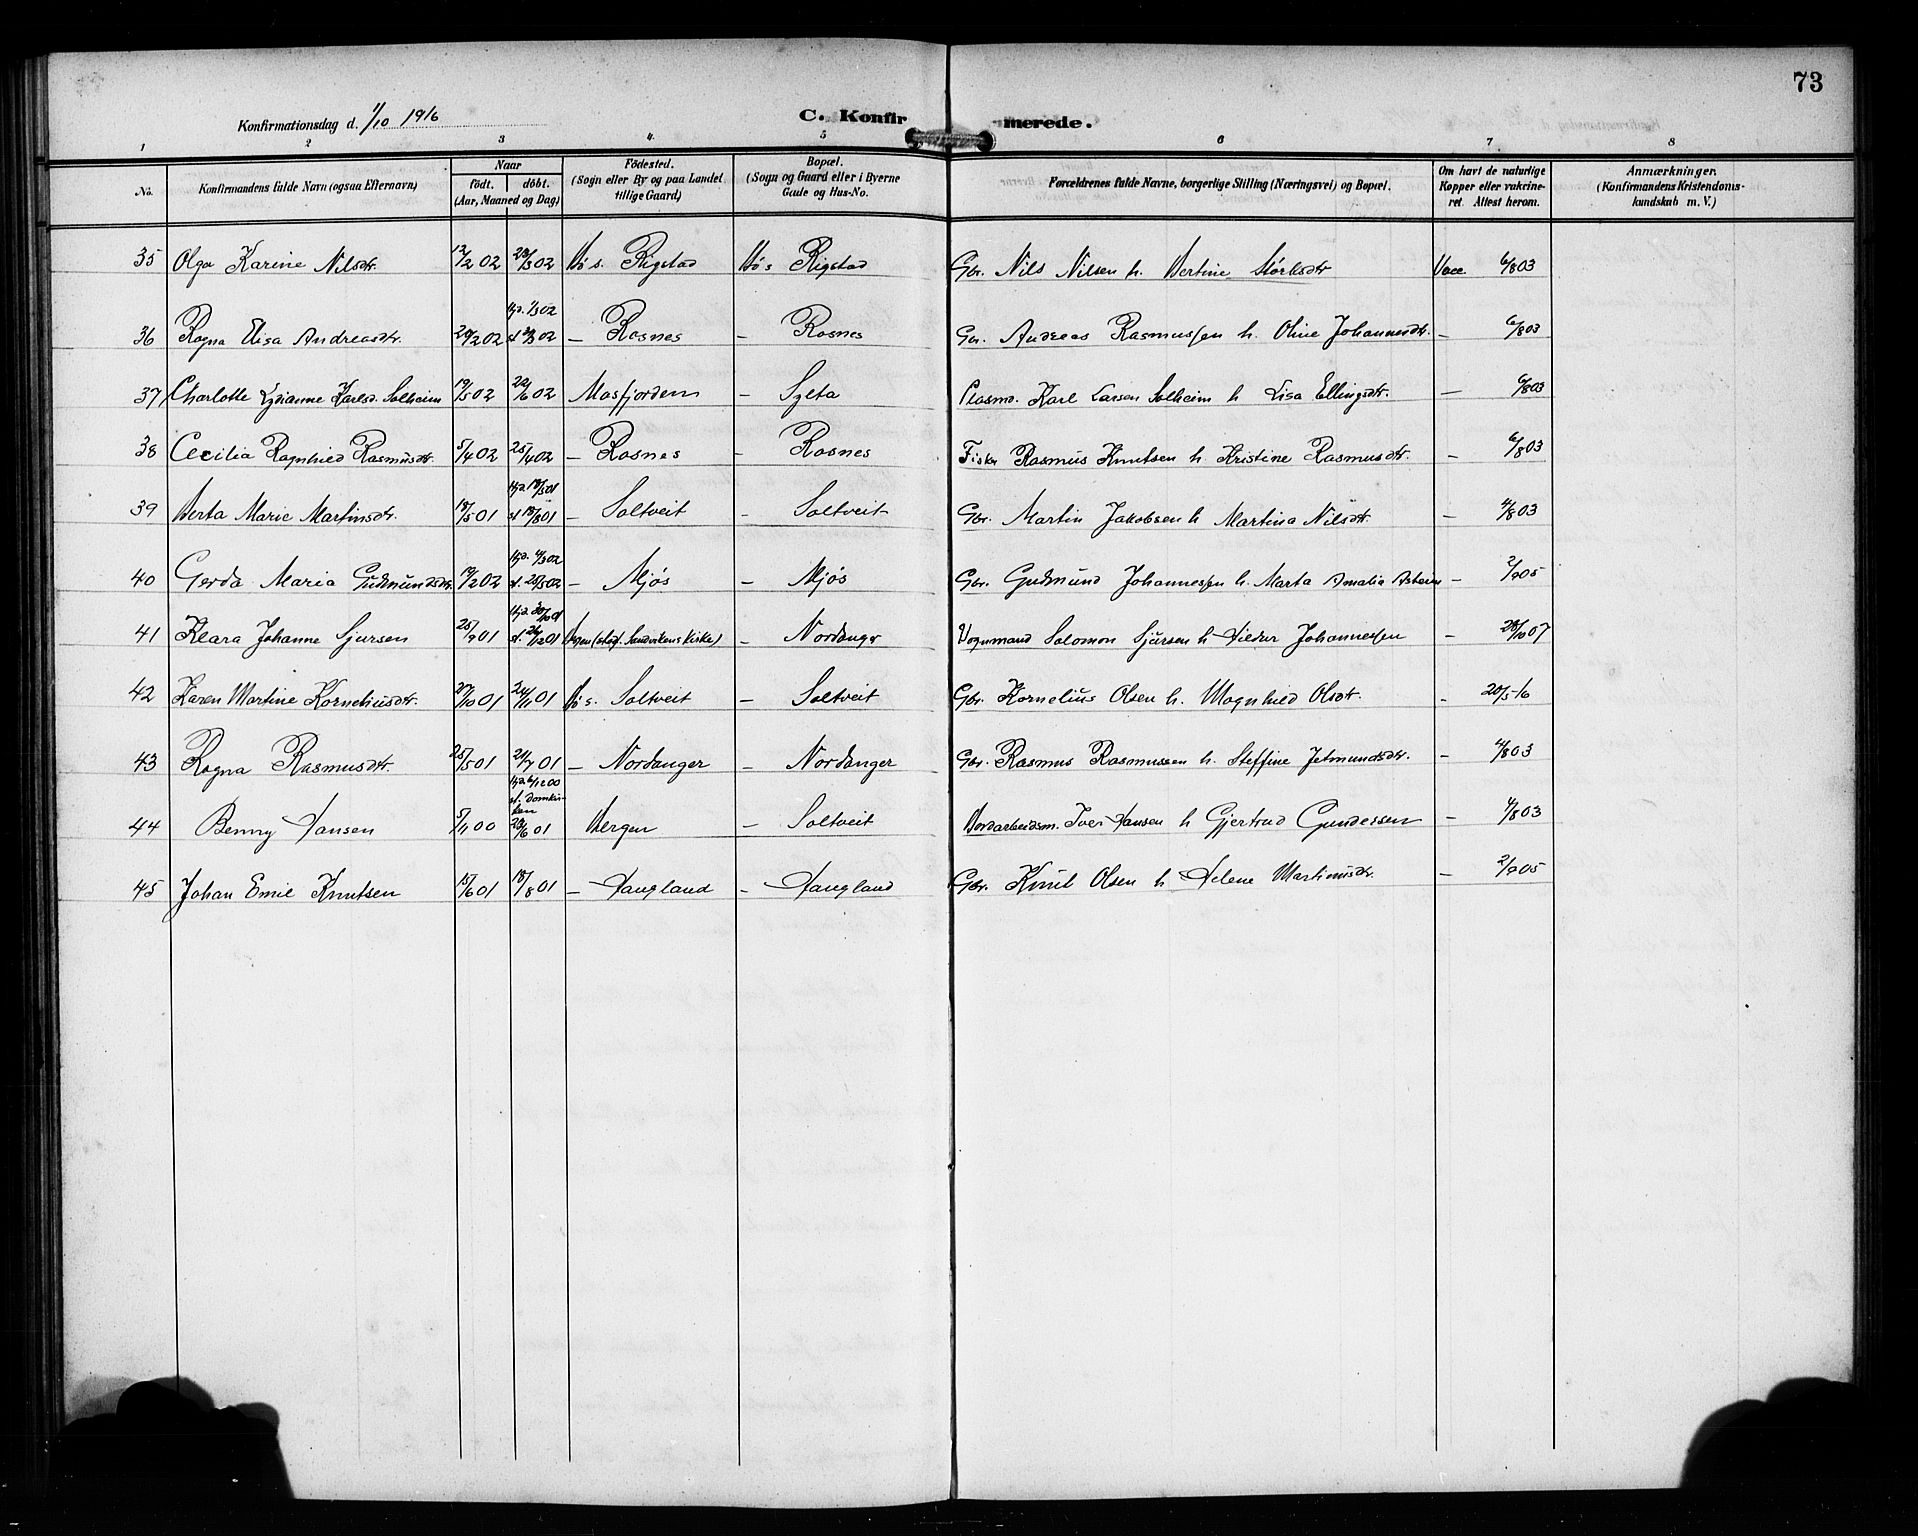 73
Konfirmationsdag d. 1/10 1916
C. Konfirmerede.
1 2 3 4 5 6 7 8
No. Konfirmandens fulde Navn (ogsaa Efternavn) Naar födt. döbt. (Aar, Maaned og Dag) Födested. (Sogn eller By og paa Landet tillige Gaard) Bopæl. (Sogn og Gaard eller i Byerne Gade og Hus-No. Forældrenes fulde Navne, borgerlige Stilling (Næringsvei) og Bopæl. Om havt de naturlige Kopper eller vakcineret. Attest herom. Anmærkninger. (Konfirmandens Kristendomskundskab m. V.)
35 Olga Karine Nilsdtr. 12/2 02 23/3 02 Hö s. Rigstad Hö s Rigstad Gbr. Nils Nilsen h. Bertine Störksdtr Vacc 6/8 03
36 Ragna Elisa Andreasdtr. 20/2 02 hjd. 1/3 02 — Rosnes — Rosnes Gbr. Andreas Rasmussen h. Oline Johannesdtr. — 6/8 03
37 Charlotte Lydianne Karlsd. Solheim 19/5 02 22/6 02 Masfjorden — Sylta Plasmd. Karl Larsen Solheim h Lisa Ellingsdtr. — 6/8 03
38 Cecilia Ragnhild Rasmusdtr. 5/4 02 25/4 02 — Rosnes — Rosnes Fisker Rasmus Knutsen h. Kristine Rasmusdtr. — 6/8 03
39 Berta Marie Martinsdtr. 18/5 01 hjd. 18/5 01 st 18/8 01 — Soltveit — Soltveit Gbr. Martin Jakobsen h Martina Nilsdtr. — 4/8 03
40 Gerda Maria Gudmundsdtr. 19/2 02 hjd. 4/3 02 st. 25/5 02 — Mjös — Mjös Gbr. Gudmund Johannessen h. Marta Amalia — 2/9 05
41 Klara Johanne Sjursen 25/9 01 hjd. 30/10 01 st. 26/12 01 Bergen (stadf. Sandvikens Kirke) — Nordanger Vognmand Salomon Sjursen h Johannessen — 28/10 07
42 Karen Martine Korneliusdtr. 27/10 01 24/11 01 Hö s. Soltveit — Soltveit Gbr. Kornelius Olsen h. Magnhild Olsdtr. - 20/5 16
43 Ragna Rasmusdtr. 25/5 01 21/7 01 — Nordanger — Nordanger Gbr. Rasmus Rasmussen h Steffine Jetmundsdtr. — 4/8 03
44 Benny Hansen 5/11 00 hjd. 6/12 00 st. Domkirken 23/6 01 Bergen — Soltveit Bordarbeidsm. Iver Hansen h Gjertrud Gundersen — 4/8 03
45 Johan Emil Knutsen 15/6 01 18/8 01 — Haugland — Haugland Gbr. Knut Olsen h Helene Martinusdtr. — 2/9 05